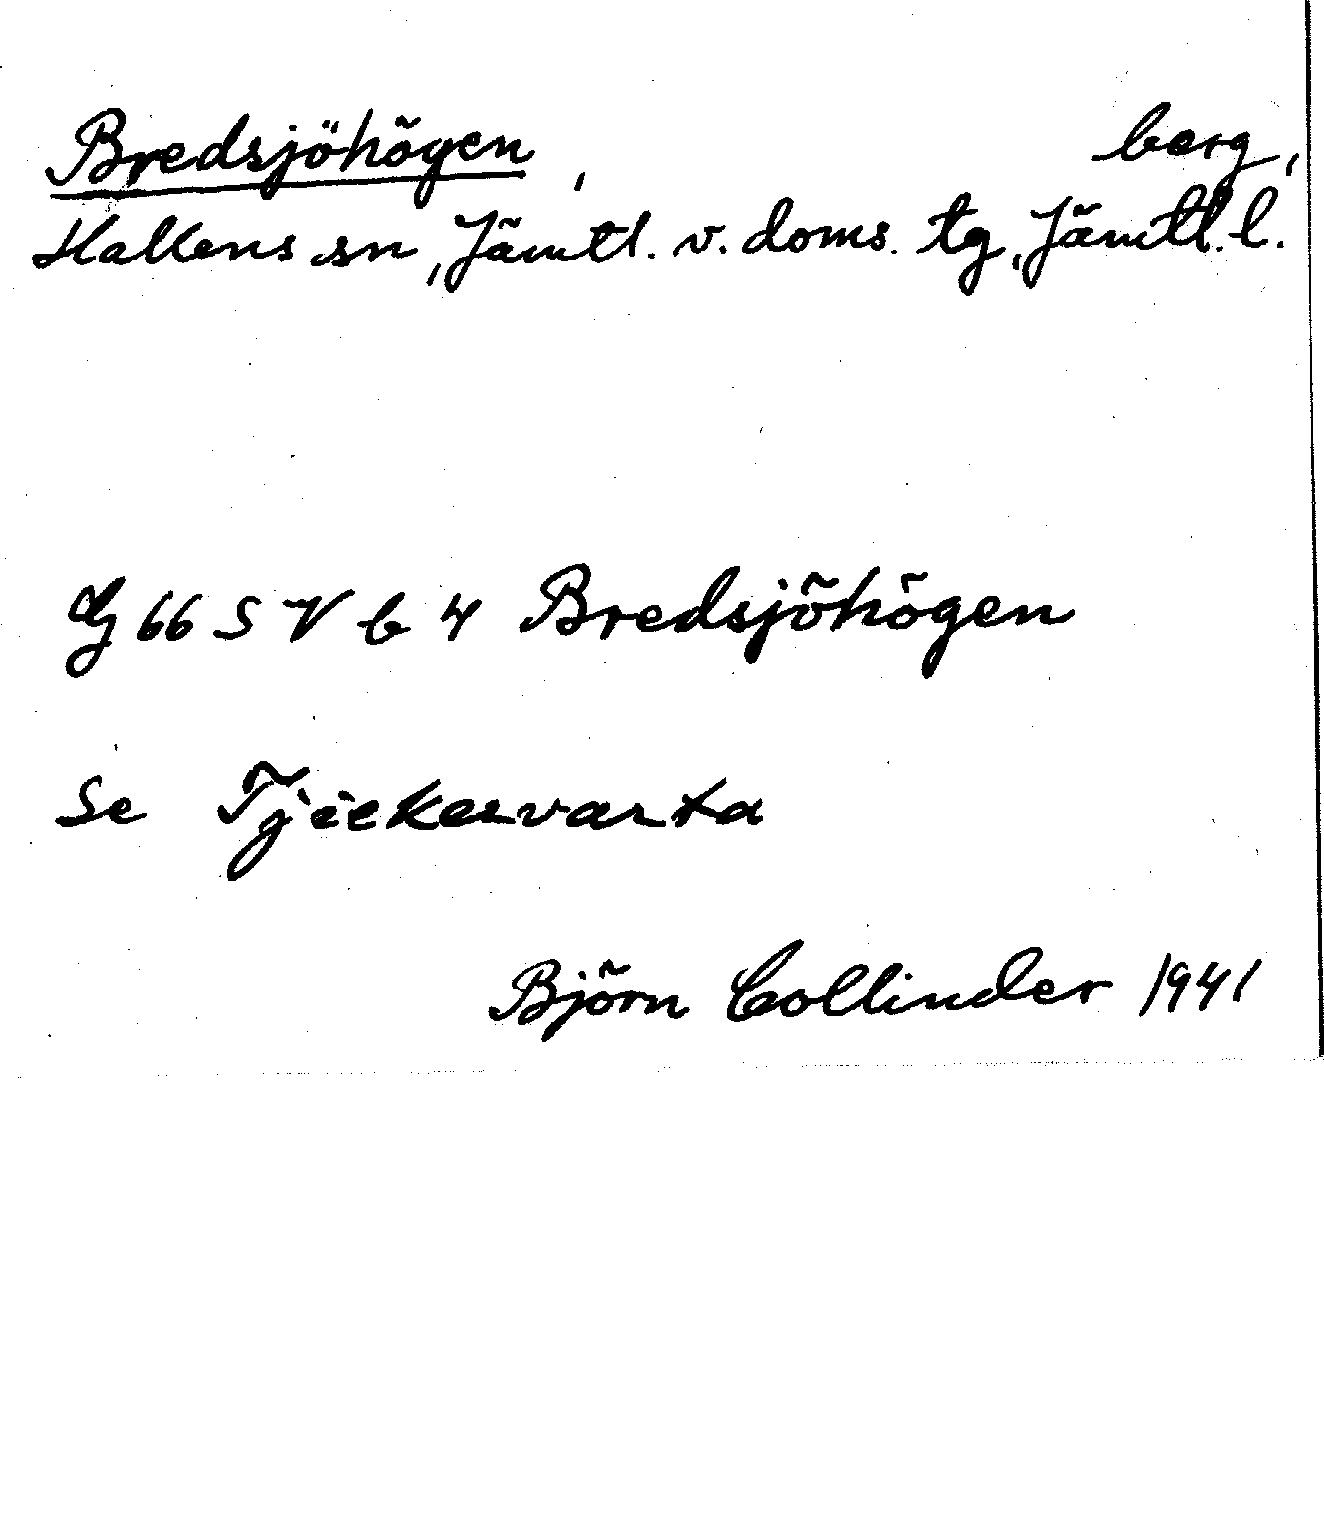 Bredsjöhögen, berg,
Hallens sn, Jämtl. v. doms. tg, Jämtl. l.
G 66 S V b 4 Bredsjöhögen
Se Tjèekesvarta
Björn Collinder 1941